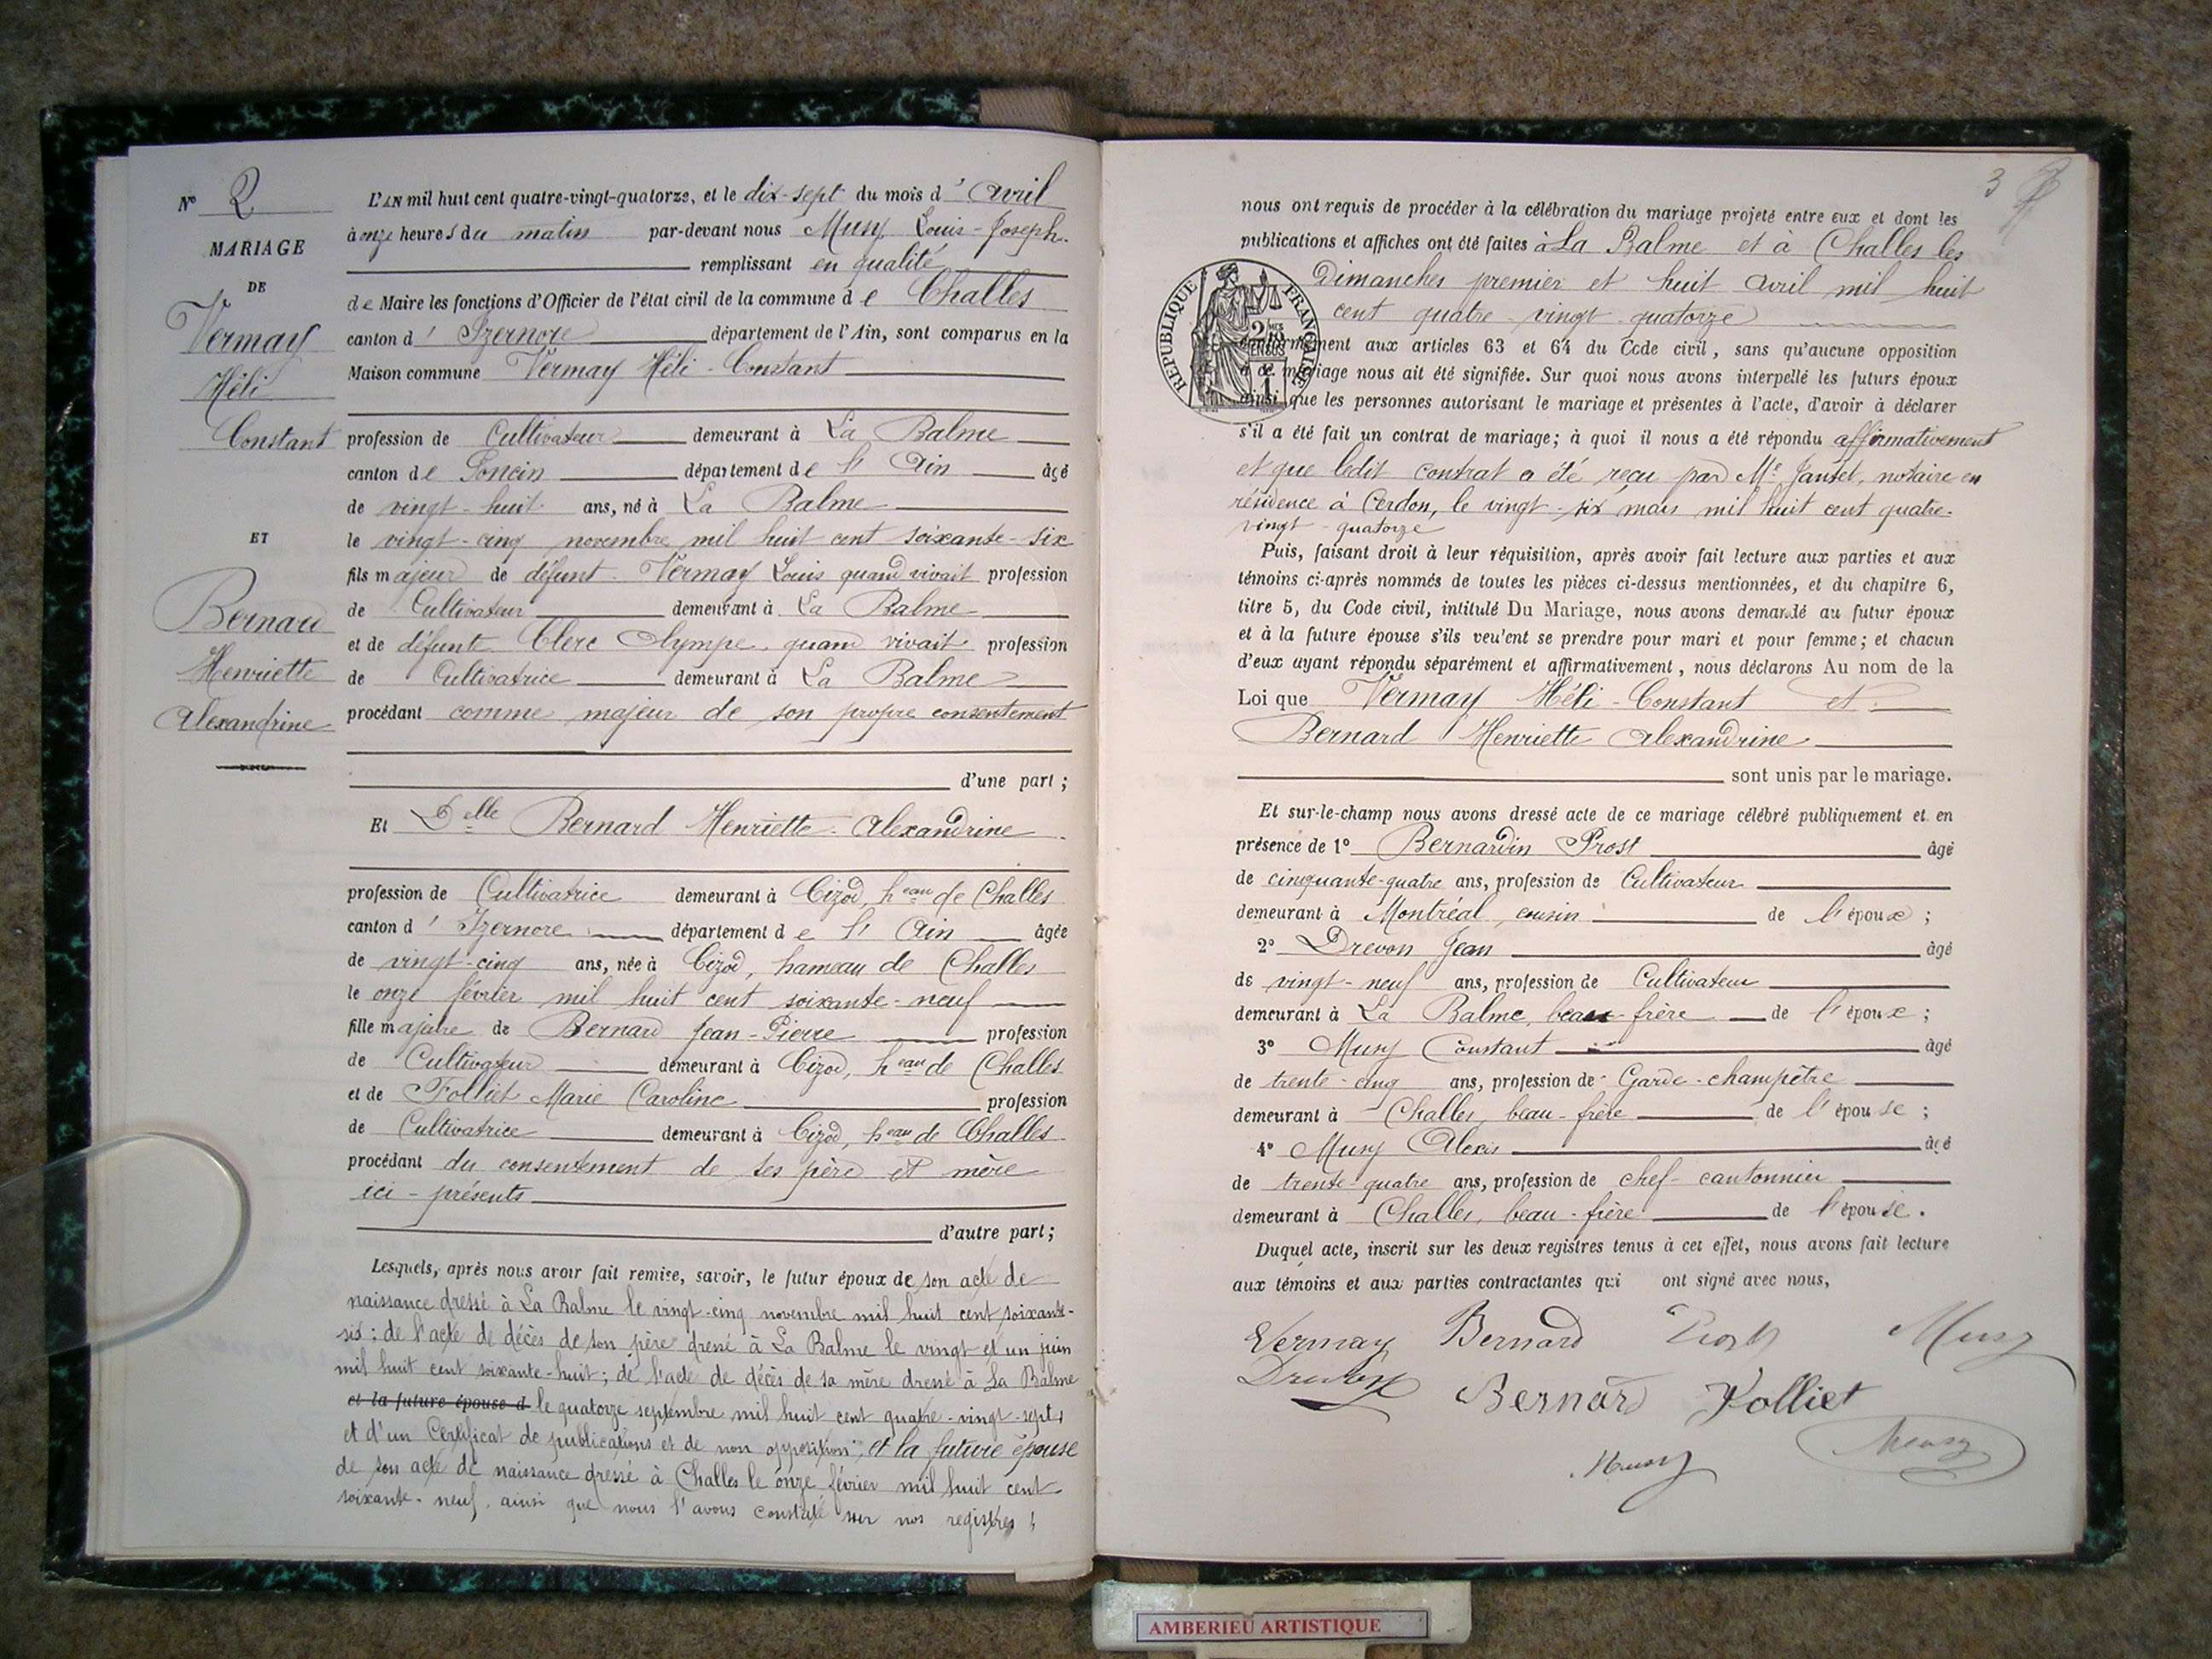 N° 2
MARIAGE
DE
Vermay
Héli
Constant
ET
Bernard
Henriette
Alexandrine
L'AN mil huit cent quatre-vingt-quatorze, et le dix-sept du mois d'Avril
à onze heures du matin par-devant nous Musy Louis-Joseph
remplissant en qualité
de Maire les fonctions d'Officier de l'état civil de la commune de Challes
canton d'Izernore département de l'Ain, sont comparus en la
Maison commune Vermay Héli-Constant
profession de Cultivateur demeurant à La Balme
canton de Poncin département de l'Ain âgé
de vingt-huit ans, né à La Balme
le vingt-cinq novembre mil huit cent soixante-six
fils majeur de défunt Vermay Louis quand vivait profession
de Cultivateur demeurant à La Balme
et de défunte Clerc Olympe, quand vivait profession
de Cultivatrice demeurant à La Balme
procédant comme majeur de son propre consentement
d'une part;
Et Delle Bernard Henriette-Alexandrine
profession de Cultivatrice demeurant à Cizod, heau de Challes
canton d'Izernore département de l'Ain âgée
de vingt-cinq ans, née à Cizod, hameau de Challes
le onze février mil huit cent soixante-neuf
fille majeure de Bernard Jean-Pierre profession
de Cultivateur demeurant à Cizod, heau de Challes
et de Folliet Marie Caroline profession
de Cultivatrice demeurant à Cizod, heau de Challes
procédant du consentement de ses père et mère
ici-présents
d'autre part;
Lesquels, après nous avoir fait remise, savoir, le futur époux de son acte de
naissance dressé à La Balme le vingt-cinq novembre mil huit cent soixante-
six; de l'acte de décès de son père dressé à La Balme le vingt et un juin
mil huit cent soixante-huit; de l'acte de décès de sa mère dressé à La Balme
et la future épouse d le quatorze septembre mil huit cent quatre-vingt-sept;
et d'un Certificat de publications et de non opposition; et la future épouse
de son acte de naissance dressé à Challes le onze février mil huit cent
soixante-neuf, ainsi que nous l'avons constaté sur nos registres;
3
nous ont requis de procéder à la célébration du mariage projeté entre eux et dont les
publications et affiches ont été faites à La Balme et à Challes les
Dimanches premier et huit avril mil huit
cent quatre-vingt-quatorze
RÉPUBLIQUE FRANÇAISE
conformément aux articles 63 et 64 du Code civil, sans qu'aucune opposition
à ce mariage nous ait été signifiée. Sur quoi nous avons interpellé les futurs époux
ainsi que les personnes autorisant le mariage et présentes à l'acte, d'avoir à déclarer
s'il a été fait un contrat de mariage; à quoi il nous a été répondu affirmativement
et que ledit contrat a été reçu par Me Jantet, notaire en
résidence à Cerdon, le vingt-six mars mil huit cent quatre-
vingt-quatorze
Puis, faisant droit à leur réquisition, après avoir fait lecture aux parties et aux
témoins ci-après nommés de toutes les pièces ci-dessus mentionnées, et du chapitre 6,
titre 5, du Code civil, intitulé Du Mariage, nous avons demandé au futur époux
et à la future épouse s'ils veulent se prendre pour mari et pour femme; et chacun
d'eux ayant répondu séparément et affirmativement, nous déclarons Au nom de la
Loi que Vermay Héli-Constant et
Bernard Henriette Alexandrine
sont unis par le mariage.
Et sur-le-champ nous avons dressé acte de ce mariage célébré publiquement et en
présence de 1° Bernardin Prost âgé
de cinquante-quatre ans, profession de Cultivateur
demeurant à Montréal, cousin de l'époux;
2° Drevon Jean âgé
de vingt-neuf ans, profession de Cultivateur
demeurant à La Balme, beau-frère de l'époux;
3° Musy Constant âgé
de trente-cinq ans, profession de Garde-champêtre
demeurant à Challes, beau-frère de l'épouse;
4° Musy Alexis âgé
de trente-quatre ans, profession de chef-cantonnier
demeurant à Challes, beau-frère de l'épouse.
Duquel acte, inscrit sur les deux registres tenus à cet effet, nous avons fait lecture
aux témoins et aux parties contractantes qui ont signé avec nous,
Vermay Bernard Prost Musy
Drevon Bernard Folliet
Musy Musy
AMBERIEU ARTISTIQUE